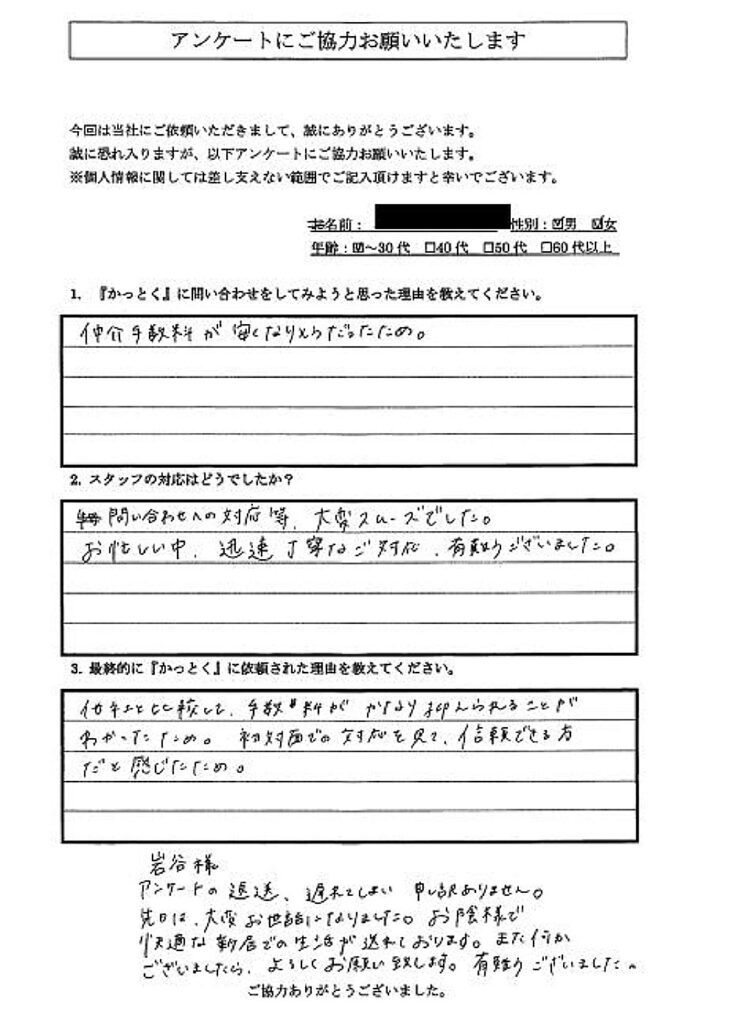 アンケートにご協力お願いいたします
今回は当社にご依頼いただきまして、誠にありがとうございます。
誠に恐れ入りますが、以下アンケートにご協力お願いいたします。
※個人情報に関しては差し支えない範囲でご記入頂けますと幸いでございます。
お名前： 性別：☑男 ☑女
年齢：☑～30代 □40代 □50代 □60代以上
1. 『かっとく』に問い合わせをしてみようと思った理由を教えてください。
仲介手数料が安くなりそうだったため。
2. スタッフの対応はどうでしたか？
問い合わせへの対応等、大変スムーズでした。
お忙しい中、迅速丁寧なご対応、有難うございました。
3. 最終的に『かっとく』に依頼された理由を教えてください。
他社と比較して、手数料がかなり抑えられることが
わかったため。初対面での対応を見て、信頼できる方
だと感じたため。
岩谷様
アンケートの返送、遅れてしまい申し訳ありません。
先日は、大変お世話になりました。お陰様で
快適な新居での生活が送れております。また何か
ございましたら、よろしくお願い致します。有難うございました。
ご協力ありがとうございました。